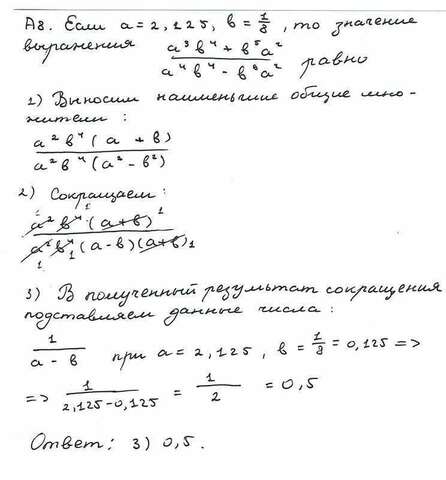 А8. Если a = 2,125, b = 1/8, то значение
выражения (a³b⁴ + b⁵a²)/(a⁴b⁴ - b⁶a²) равно
1) Выносим наименьшие общие мно-
жители:
a²b⁴(a + b)
a²b⁴(a² - b²)
2) Сокращаем:
1 1
a² b⁴ (a+b) 1
a² b⁴ (a-b)(a+b) 1
1 1
3) В полученный результат сокращения
подставляем данные числа:
1/(a - b) при a = 2,125, b = 1/8 = 0,125 =>
=> 1/(2,125-0,125) = 1/2 = 0,5
Ответ: 3) 0,5.